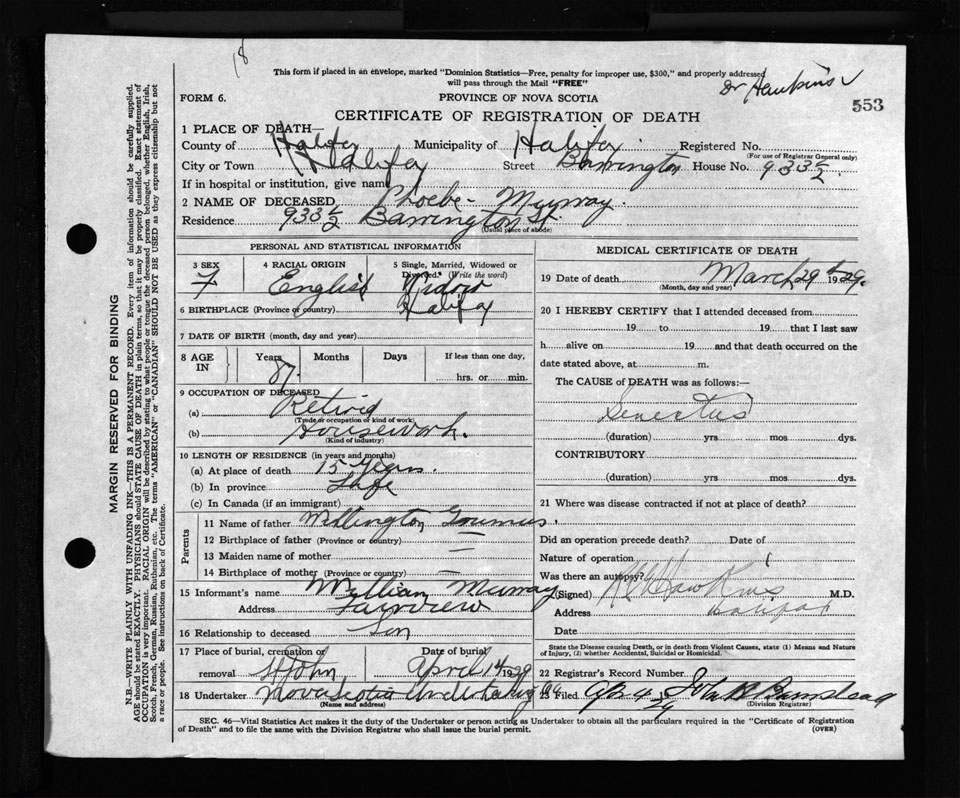 18
This form if placed in an envelope, marked "Dominion Statistics—Free, penalty for improper use, $300," and properly addressed
will pass through the Mail "FREE"
Dr Hawkins
FORM 6.
PROVINCE OF NOVA SCOTIA
553
CERTIFICATE OF REGISTRATION OF DEATH
1 PLACE OF DEATH—
County of Halifax Municipality of Halifax Registered No.
(For use of Registrar General only)
City or Town Halifax Street Barrington House No. 933½
If in hospital or institution, give name
2 NAME OF DECEASED Phoebe Murray.
Residence 933½ Barrington St.
(Usual place of abode)
PERSONAL AND STATISTICAL INFORMATION
3 SEX 4 RACIAL ORIGIN 5 Single, Married, Widowed or
Divorced. (Write the word)
F English Widow
6 BIRTHPLACE (Province or country) Halifax
7 DATE OF BIRTH (month, day and year)
8 AGE IN Years Months Days If less than one day,
87. hrs. or min.
9 OCCUPATION OF DECEASED
(a) Retired
(Trade or occupation or kind of work)
(b) Housework.
(Kind of industry)
10 LENGTH OF RESIDENCE (in years and months)
(a) At place of death 15 Years.
(b) In province Life
(c) In Canada (if an immigrant)
Parents
11 Name of father
12 Birthplace of father (Province or country) —
13 Maiden name of mother —
14 Birthplace of mother (Province or country) —
15 Informant's name William Murray
Address Fairview
16 Relationship to deceased Son
17 Place of burial, cremation or Date of burial
removal St John April 1st 1929
18 Undertaker Nova Scotia Undertaking Co
(Name and address)
MEDICAL CERTIFICATE OF DEATH
19 Date of death March 29th 1929.
(Month, day and year)
20 I HEREBY CERTIFY that I attended deceased from
19 to 19 that I last saw
h alive on 19 and that death occurred on the
date stated above, at m.
The CAUSE of DEATH was as follows:—
Senectus
(duration) yrs mos dys.
CONTRIBUTORY
(duration) yrs mos dys.
21 Where was disease contracted if not at place of death?
Did an operation precede death? Date of
Nature of operation
Was there an autopsy?
(Signed) Hawkins M.D.
Address Halifax
Date
State the Disease causing Death, or in death from Violent Causes, state (1) Means and Nature
of Injury, (2) whether Accidental, Suicidal or Homicidal.
22 Registrar's Record Number
23 Filed Ap 4/29 John Bumstead
(Division Registrar)
SEC. 46—Vital Statistics Act makes it the duty of the Undertaker or person acting as Undertaker to obtain all the particulars required in the "Certificate of Registration
of Death" and to file the same with the Division Registrar who shall issue the burial permit.
(OVER)
MARGIN RESERVED FOR BINDING
N.B.—WRITE PLAINLY WITH UNFADING INK—THIS IS A PERMANENT RECORD. Every item of information should be carefully supplied.
AGE should be stated EXACTLY. PHYSICIANS should STATE CAUSE OF DEATH in plain terms, so that it may be properly classified. Exact statement of
OCCUPATION is very important. RACIAL ORIGIN will be described by stating to what people or tongue the deceased person belonged, whether English, Irish,
Scotch, French, German, Russian, Ruthenian, etc. The terms "AMERICAN" or "CANADIAN" SHOULD NOT BE USED as they express citizenship but not
a race or people. See instructions on back of Certificate.